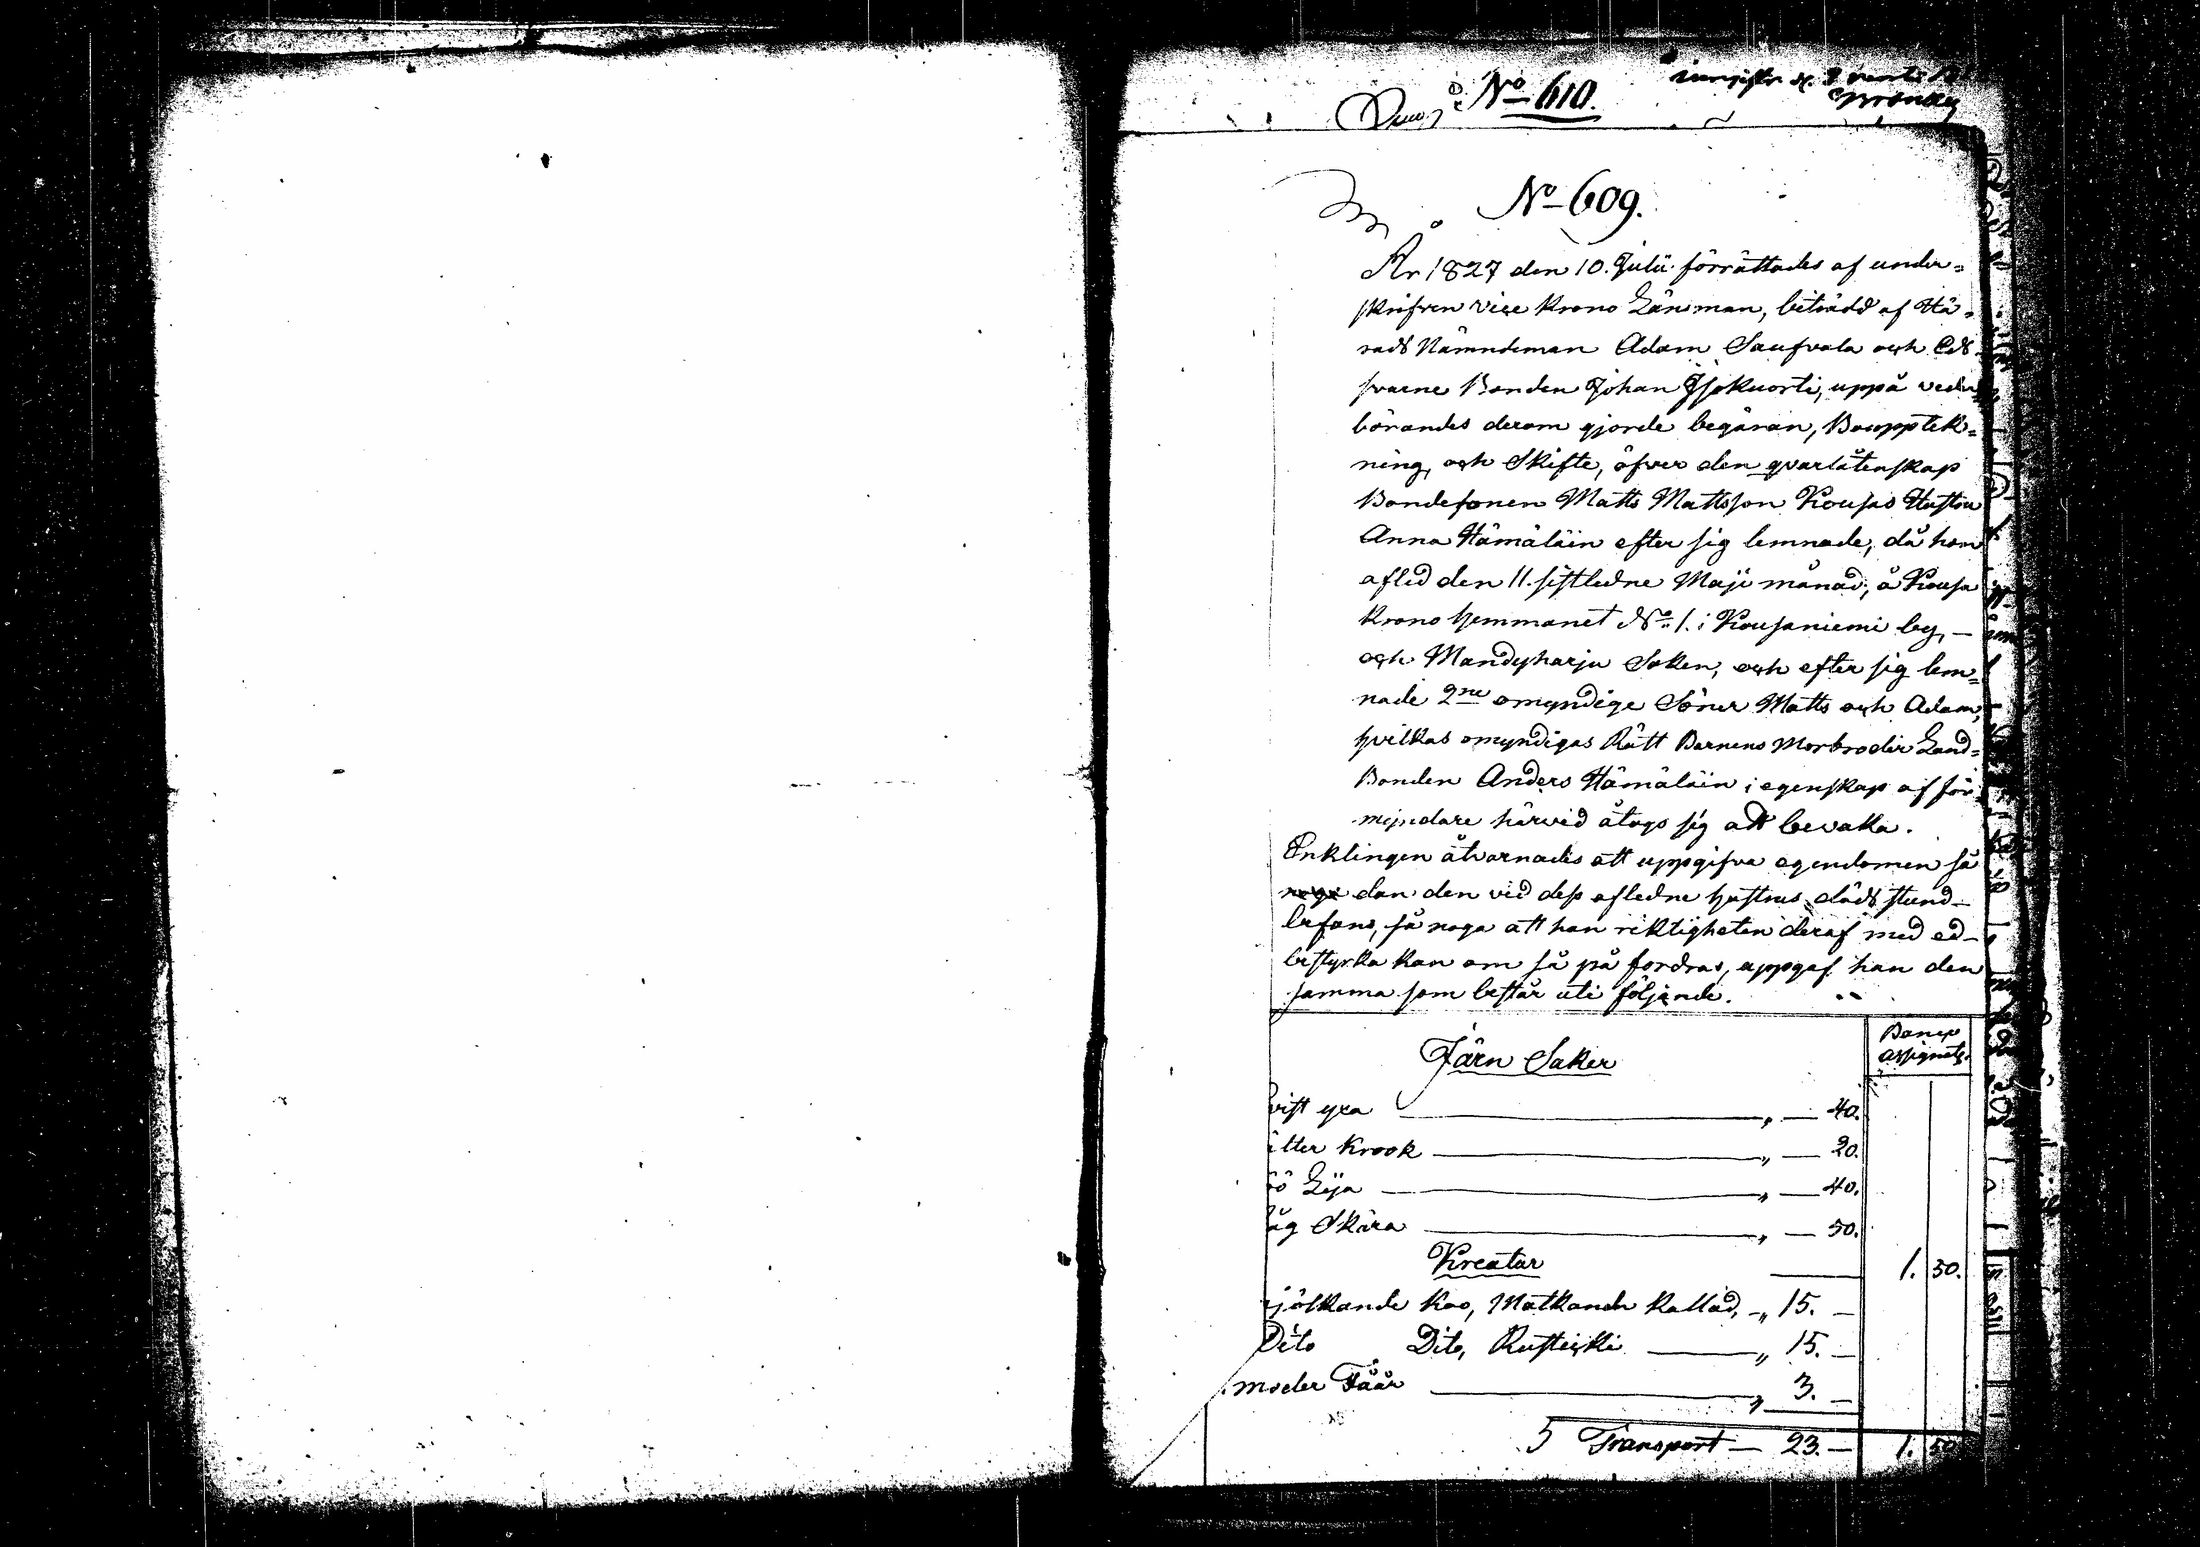 No 610.
No 609.
År 1827 den 10. Julii förrättades af under=
skrifven vice Krono Länsman, biträdd af Hä=
rads Nämndeman Adam Saufvala och Ed
svarne Bonden Johan Isokuorti, uppå veder
börandes derom gjorde begäran, Bouppték=
ning, och Skifte, öfver den qvarlåtenskap
Bondesonen Matts Mattsson Kousas Hustru
Anna Hämäläin efter sig lemnade, då hon
afled den 11. sistledne Maji månad, å Kousa
Krono hemmanet No. 1. i Kousaniemi by, —
och Mandyharju Soken, och efter sig lem=
nade 2ne omyndige Söner Matts och Adam,
hvilkas omyndigas Rätt Barnens Morbroder Land=
Bonden Anders Hämäläin i egenskap af för
myndare härvid åtogs sig att bevaka.
Enklingen åtvarnades att uppgifva egendomen så
dan den vid dess afledne hustrus döds stund
befans, så noga att han riktigheten deraf med ed
bestyrka kan om så på fordras, uppgaf han den
samma som består uti följande.
Banco
assignats.
Järn Saker
vist yxa — " — 40.
itter Krook — " — 20.
öö Lija — " — 40.
üg Skära — " — 50.
Kreatur — 1. 50.
jölkande Koo, Matkande Kallad, — " 15. —
Dito Dito, Rusticki — " 15. —
moder Fåår — " 3. —
5 Transport — 23. — 1. 50